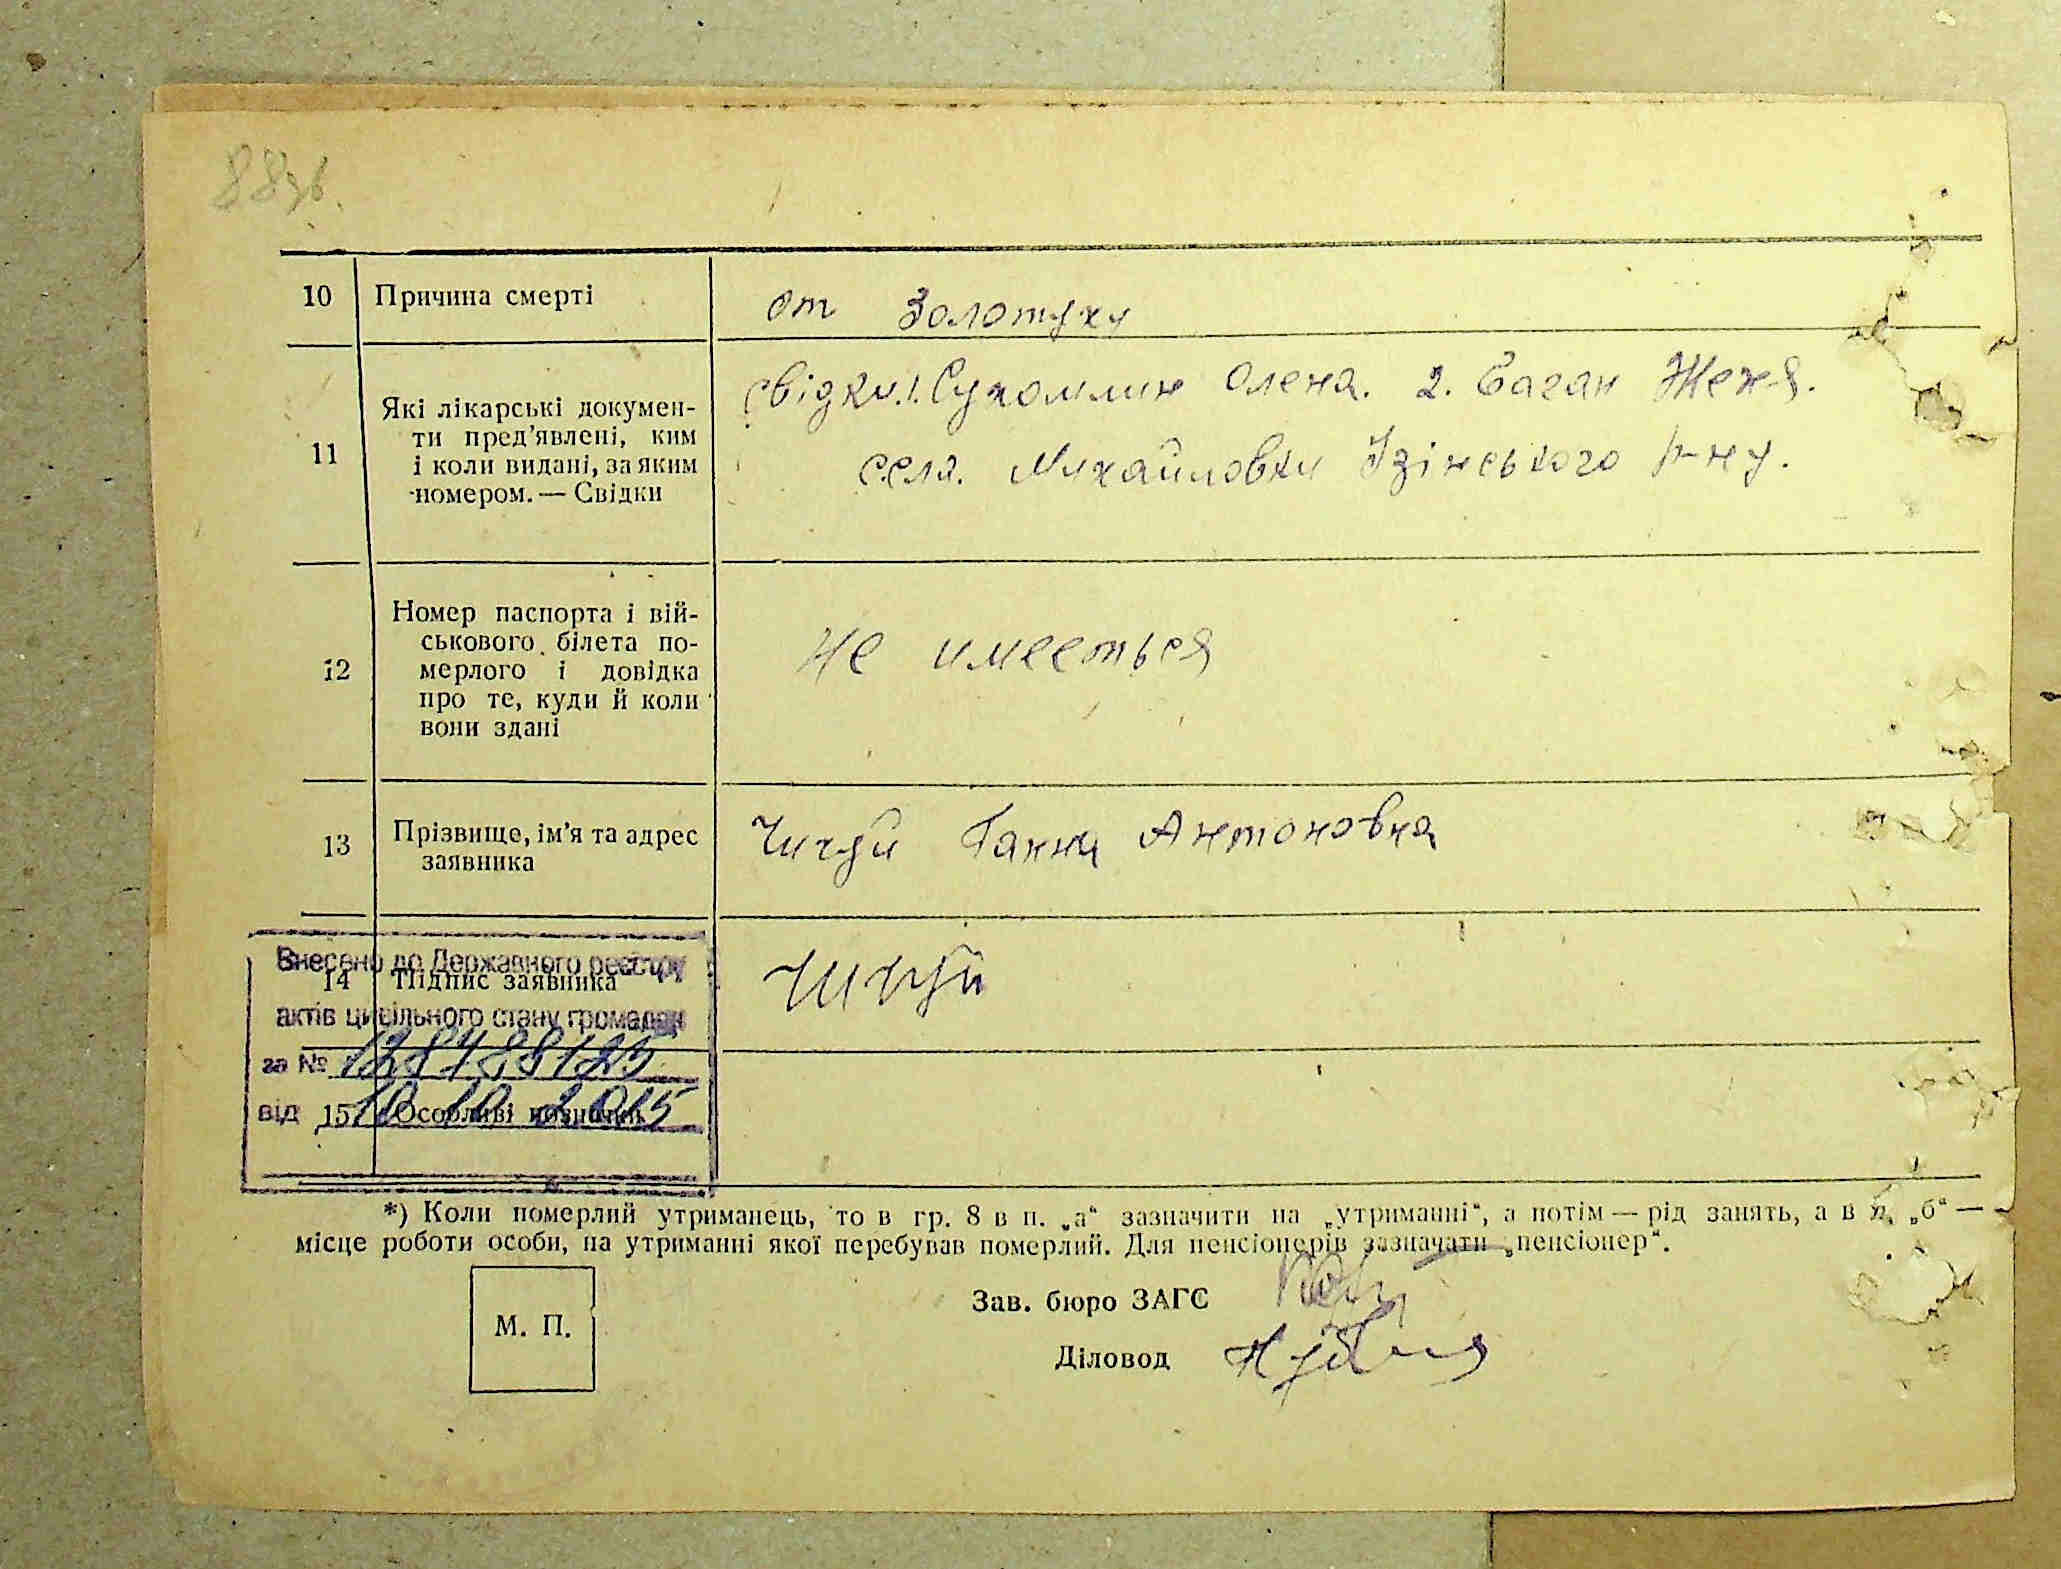 88зв.
10 Причина смерті от золотухи
11 Які лікарські докумен-
ти пред'явлені, ким
і коли видані, за яким
номером. — Свідки
свідки.1. Сухомлин Олена. 2. Баган Женя.
села. Михайловки Ізінського р-ну.
12 Номер паспорта і вій-
ськового білета по-
мерлого і довідка
про те, куди й коли
вони здані
Не имееться
13 Прізвище, ім'я та адрес
заявника
Чичуй Ганна Антоновна
14 Підпис заявника Чичуй
15 Особливі позначки
Внесено до Державного реєстру
актів цивільного стану громадян
за №
від 10 10 2015
*) Коли померлий утриманець, то в гр. 8 в п. „а“ зазначити на „утриманні“, а потім — рід занять, а в п. „б“ —
місце роботи особи, на утриманні якої перебував померлий. Для пенсіонерів зазначати „пенсіонер“.
М. П.
Зав. бюро ЗАГС
Діловод